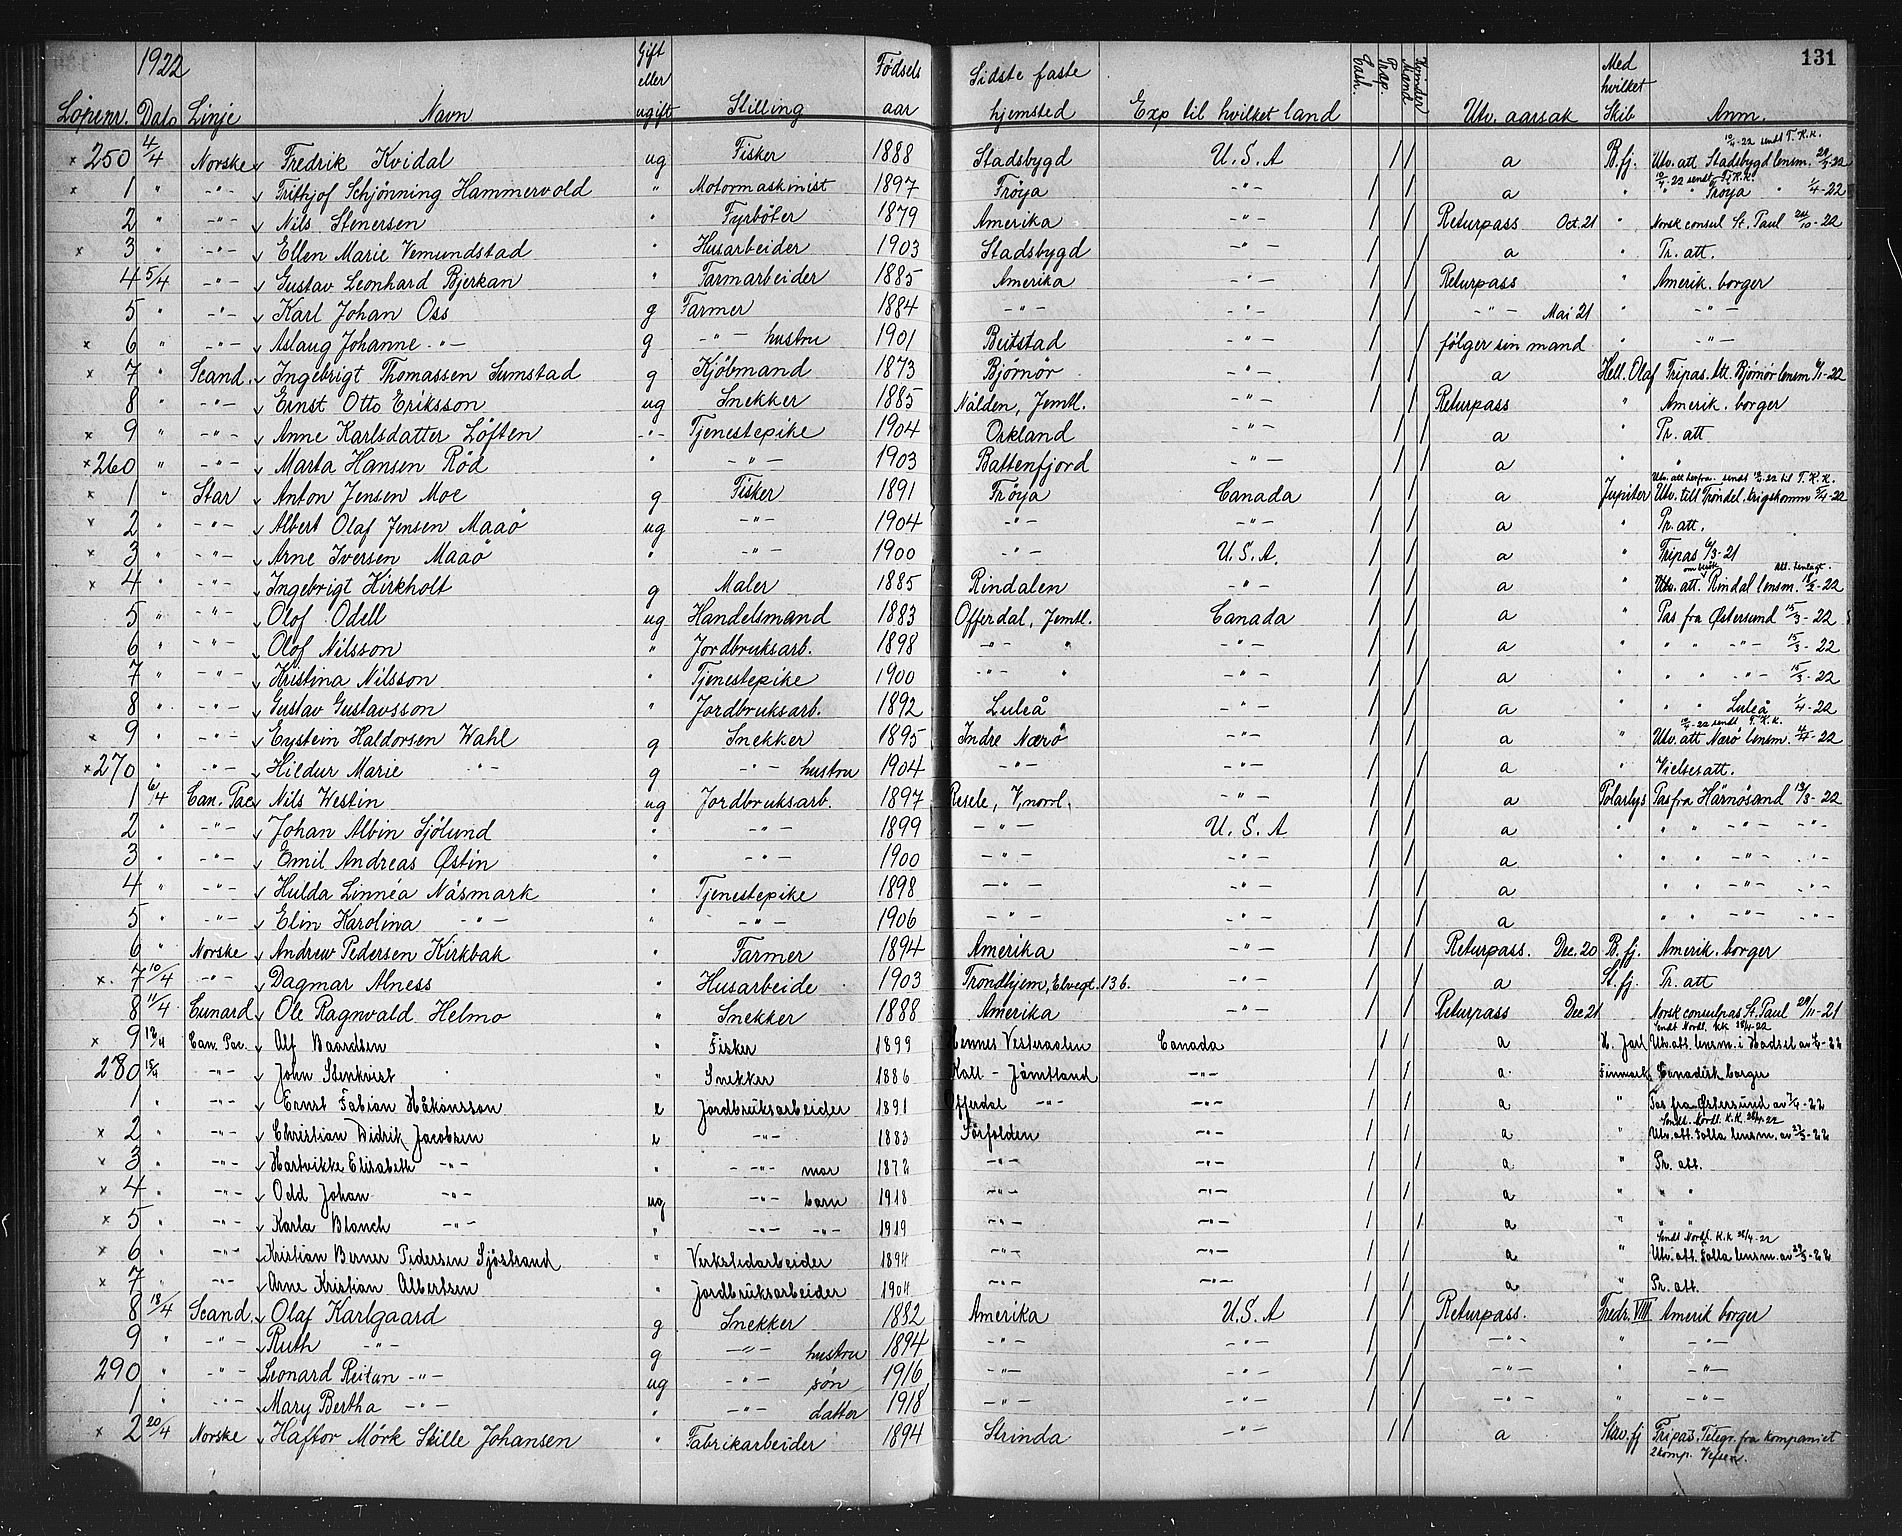 131
1922
Löpenr. Dato Linje Navn Gift eller ugift Stilling Fødsels aar Sidste faste hjemsted Exp til hvilket land Cash. Prap. Mand Kvinder Utv. aarsak Med hvilket Skib Anm.
10/4-22 sendt T.K.K.
x 250 4/4 Norske Fredrik Kvidal ug Fisker 1888 Stadsbygd U.S.A / / a B.fj. Utv. att Stadsbygd lensm.
10/4-22 sendt T.K.K.
x 1 " -"- Frithjof Schjönning Hammervold " Motormaskinist 1897 Frøya -"- / / a " " " Frøya " 1/4-22
2 " -"- Nils Stenersen " Fyrböter 1879 Amerika -"- / / Returpass Oct. 21 " Norsk consul St. Paul 24/10-22
x 3 " -"- Ellen Marie Vemundstad " Husarbeider 1903 Stadsbygd -"- / / a " Pr. att.
4 5/4 -"- Gustav Leonhard Bjerkan " Farmarbeider 1885 Amerika -"- / / Returpass " Amerik. borger
5 " -"- Karl Johan Oss g Farmer 1884 -"- -"- / / -"- Mai 21 " -"-
x 6 " -"- Aslaug Johanne -"- g -"- hustru 1901 Beitstad -"- / / følger sin mand " -"-
x 7 " Scand. Ingebrigt Thomassen Sumstad g Kjöbmand 1873 Bjørnör -"- / / a Hell. Olaf Tripas. Att. Bjørnör lensm
8 " -"- Ernst Otto Eriksson ug Snekker 1885 Nälden, Jemtl. -"- / / Returpass " Amerik. borger
x 9 " -"- Anne Karlsdatter Löften -"- Tjenestepike 1904 Orkland -"- / / a " Pr. att
x 260 " -"- Marta Hansen Röd " -"- 1903 Battenfjord -"- / / a " "
x 1 " Star Anton Jensen Moe g Fisker 1891 Frøya Canada / / a Jupiter Utv. till Tröndel. krigskomm
x 2 " -"- Albert Olaf Jensen Maaö ug -"- 1904 -"- -"- / / a " Pr. att.
x 3 " -"- Arne Iversen Maaö " -"- 1900 -"- U.S.A. / / a " Tripas 6/3-21
x 4 " -"- Ingebrigt Kirkholt g Maler 1885 Rindalen -"- / / a " Utv. att. Rindal lensm. 18/2-22
5 " -"- Olof Odell ug Handelsmand 1883 Offerdal, Jemtl. Canada / / a " Pas fra Østersund 15/3-22
6 " -"- Olof Nilsson " Jordbruksarb. 1898 -"- " -"- / / a " " " -"- 15/3-22
7 " -"- Kristina Nilsson " Tjenestepike 1900 -"- " -"- / / a " " " -"- 15/3-22
8 " -"- Gustav Gustavsson " Jordbruksarb. 1892 Luleå -"- / / a " " " Luleå 1/4-22
sendt T.K.K.
x 9 " -"- Eystein Haldorsen Wahl g Snekker 1895 Indre Nærö -"- / / a " Utv. att Nærö lensm.
x 270 " -"- Hildur Marie -"- g -"- hustru 1904 -"- -"- / / a " Vielsesatt.
1 6/4 Can. Pac Nils Westin ug Jordbruksarb. 1897 Resele, V, norrl. -"- / / a Polarlys Pas fra Härnösand 13/3-22
2 " -"- Johan Albin Sjölund " -"- 1899 -"- U.S.A / / a " " " -"- -"-
3 " -"- Emil Andreas Östin " -"- 1900 -"- -"- / / a " " " -"- -"-
4 " -"- Hulda Linnéa Näsmark " Tjenestepike 1898 -"- -"- / / a " " " -"- -"-
5 " -"- Elin Karolina -"- " -"- 1906 -"- -"- / / a " " -"- -"-
6 " Norske Andrew Pedersen Kirkbak " Farmer 1894 Amerika -"- / / Returpass. Dec. 20 B.fj. Amerik. borger
x. 7 10/4 -"- Dagmar Alness " Husarbeide 1903 Trondhjem, Elvegt. 136. -"- / / a St.fj. Pr. att
8 11/4 Cunard Ole Ragnvald Helmo " Snekker 1888 Amerika -"- / / Returpass Dec 21 Norsk consulpas St. Paul 29/11-21
Sendt Nordl. KK 28/4-22
x 9 12/4 Can. Pac. Alf Baardsen " Fisker 1899 Hennes Vesteraalen Canada / / a H. Jarl Utv. att. lensm. i Hadsel
280 15/4 -"- John Stenkvist " Snekker 1886 Kall - Jämtland -"- / / a Finmark Canadisk borger
1 " -"- Ernst Fabian Håkansson e Jordbruksarbeider 1891 Offerdal -"- -"- / / a " Pas fra Östersund av 7/4-22
Sendt. Nordl. K.K. 28/4-22
x 2 " -"- Christian Didrik Jacobsen e -"- 1883 Sörfolden -"- / / a " Utv. att. Folla lensm. av 27/3-22
x 3 " -"- Hartvikke Elisabeth -"- " -"- mor 1872 -"- -"- / / a " Pr. att.
x 4 " -"- Odd Johan -"- ug -"- barn 1918 -"- -"- / / a " "
x 5 " -"- Karla Blanch -"- " -"- -"- 1919 -"- -"- / / a " "
Sendt Nordl. K.K 28/4-22
x 6 " -"- Kristian Berner Pedersen Sjöstrand " Verkstedarbeider 1894 -"- -"- / / a " Utv. att. Folla lensm. av 29/3-22
x 7 " -"- Arne Kristian Albertsen " Jordbruksarbeider 1904 -"- -"- / / a " Pr. att.
8 18/4 Scand. Olaf Karlgaard g Snekker 1882 Amerika U.S.A / / Returpass. Fredr. VIII Amerik borger
9 " -"- Ruth -"- g -"- hustru 1894 -"- -"- / / -"- " -"-
290 " -"- Leonard Reitan -"- ug -"- søn 1916 -"- -"- / / -"- " -"-
1 " -"- Mary Bertha -"- " -"- datter 1918 -"- -"- / / -"- " -"-
x 2 20/4 Norske Haftor Mörk Stille Johansen " Fabrikarbeider 1894 Strinda -"- / / a Stav.fj Tripas, Telegr. fra kompaniet
2 komp. Vefsen.